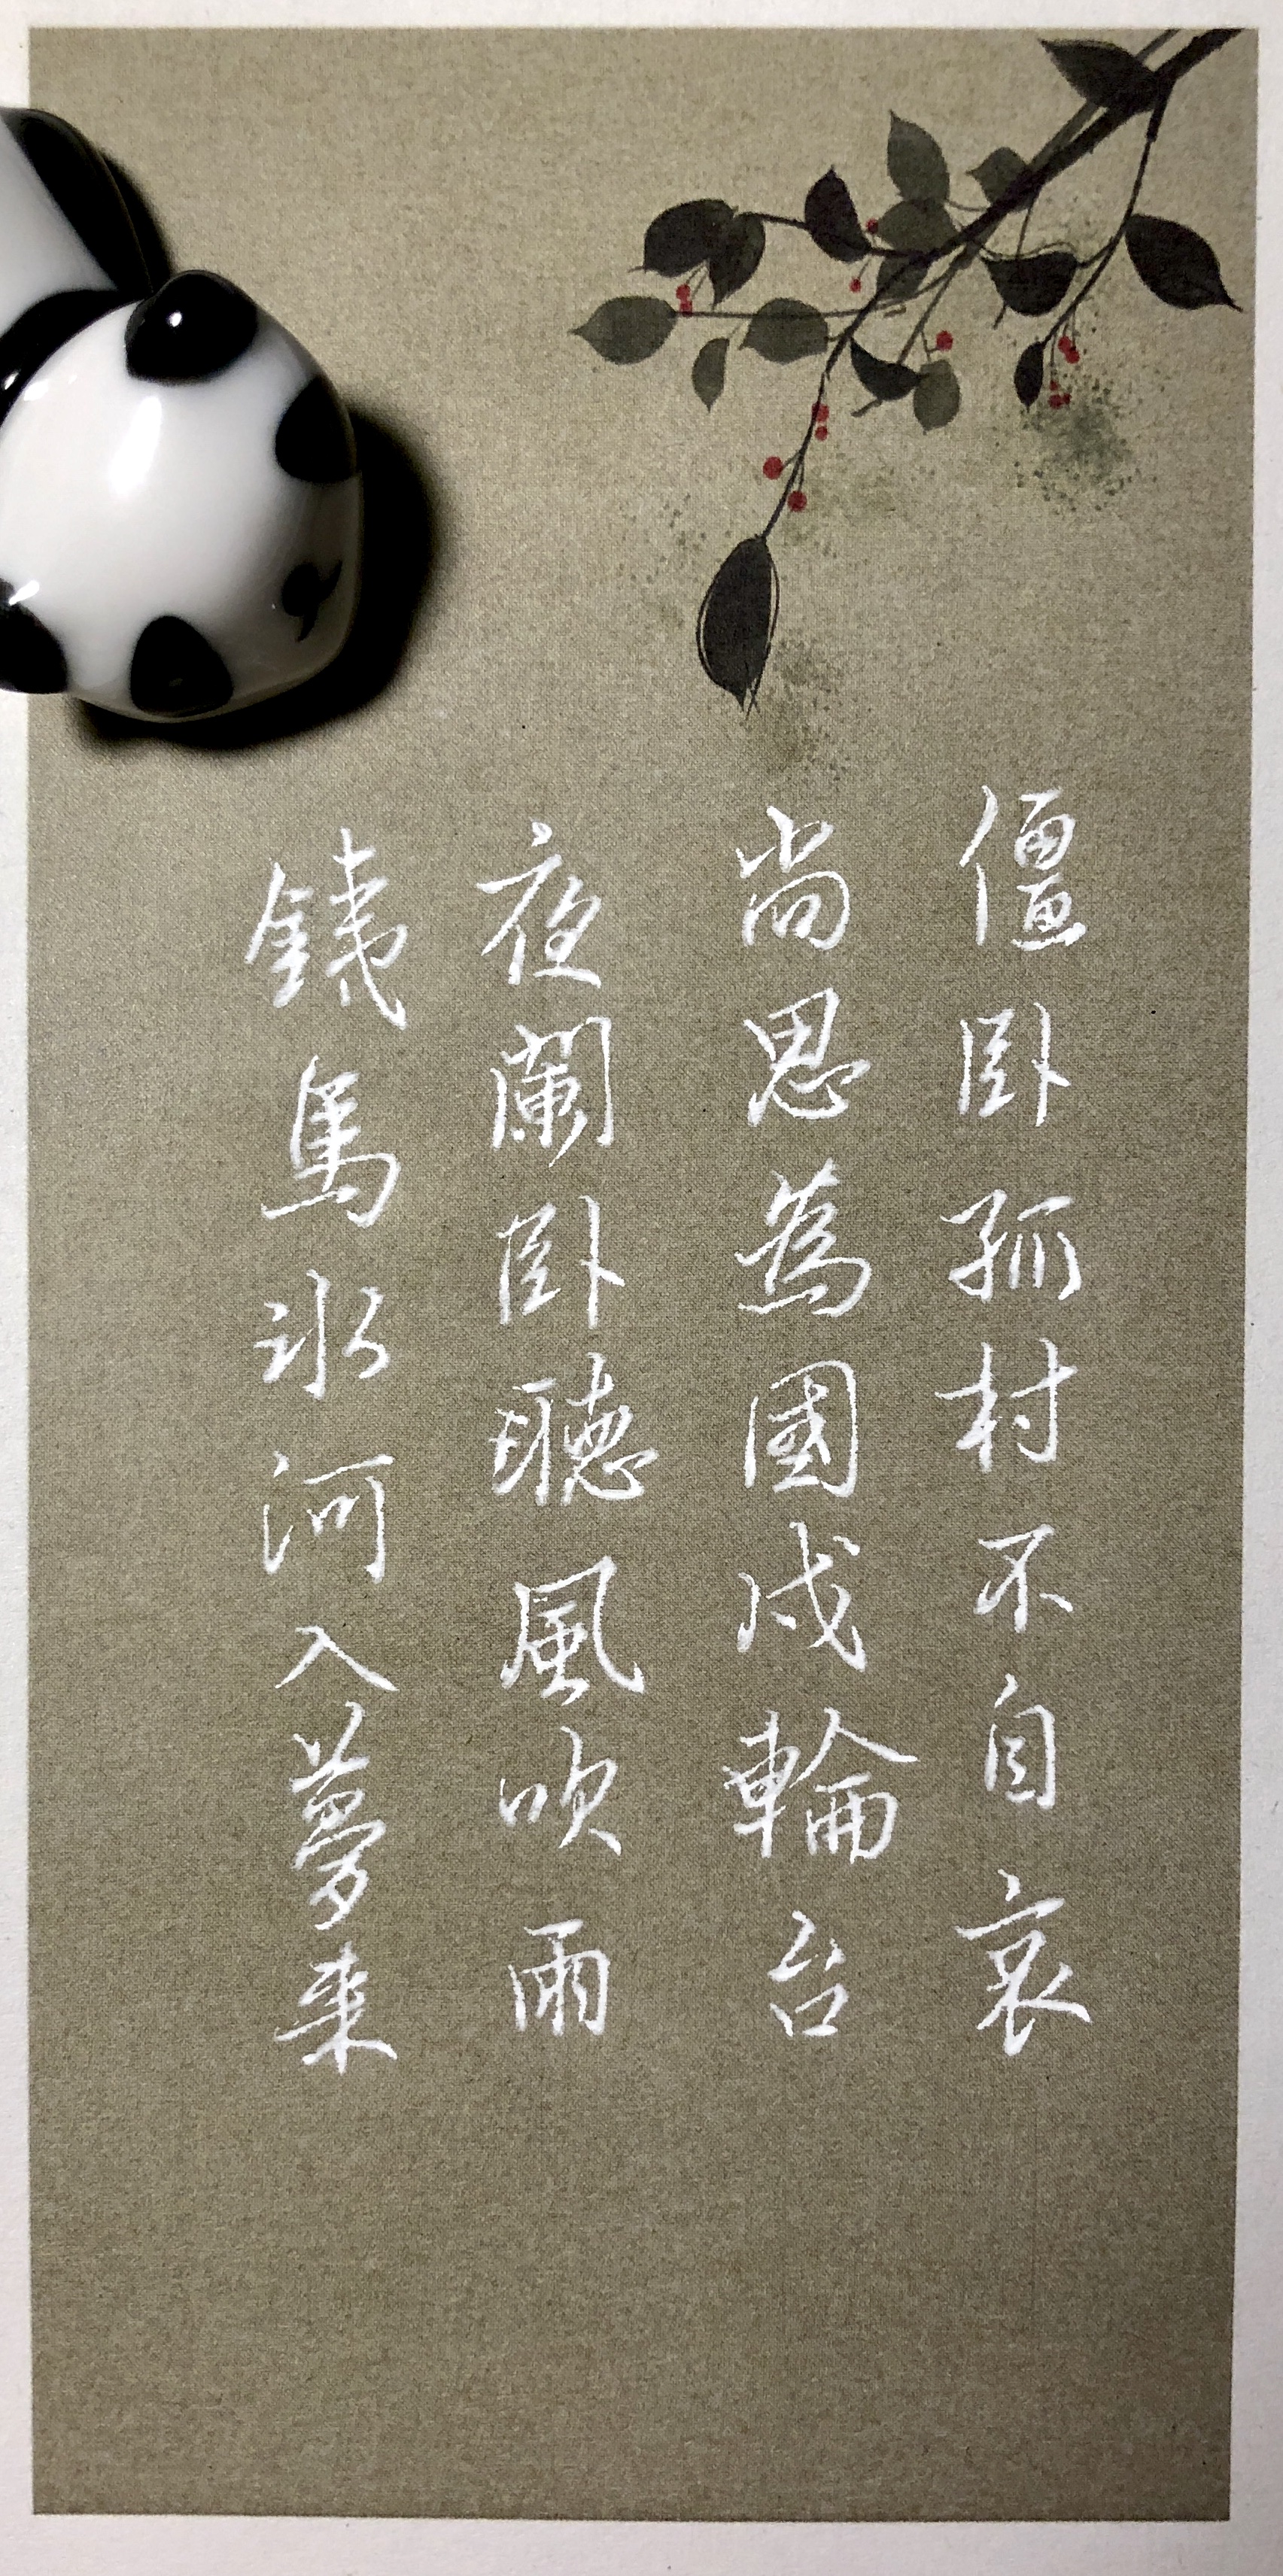 僵卧孤村不自哀
尚思為國戍輪台
夜闌卧聽風吹雨
銕馬冰河入夢来